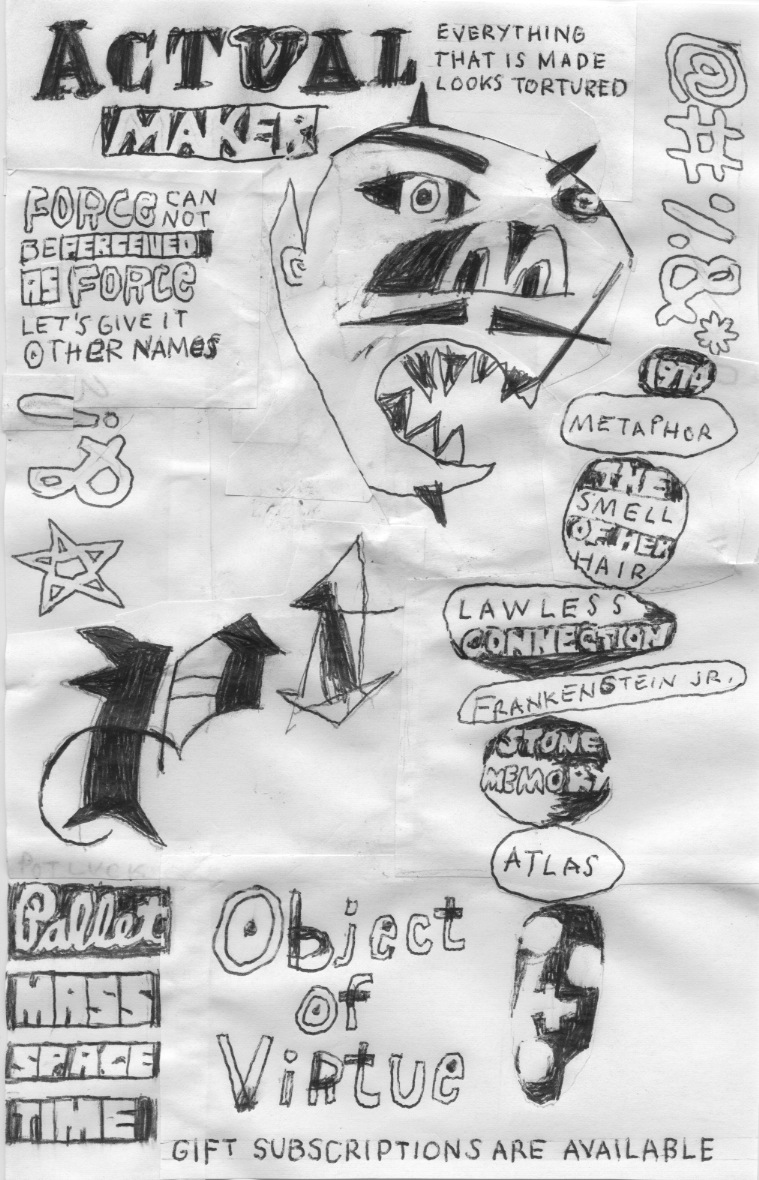 ACTUAL
MAKER
EVERYTHING
THAT IS MADE
LOOKS TORTURED
@#%&*
FORCE CAN
NOT
BE PERCEIVED
AS FORCE
LET'S GIVE IT
OTHER NAMES
!&
1974
METAPHOR
THE
SMELL
OF HER
HAIR
LAWLESS
CONNECTION
FRANKENSTEIN JR.
STONE
MEMORY
ATLAS
POT LUCK
Pallet
MASS
SPACE
TIME
Object
of
Virtue
GIFT SUBSCRIPTIONS ARE AVAILABLE